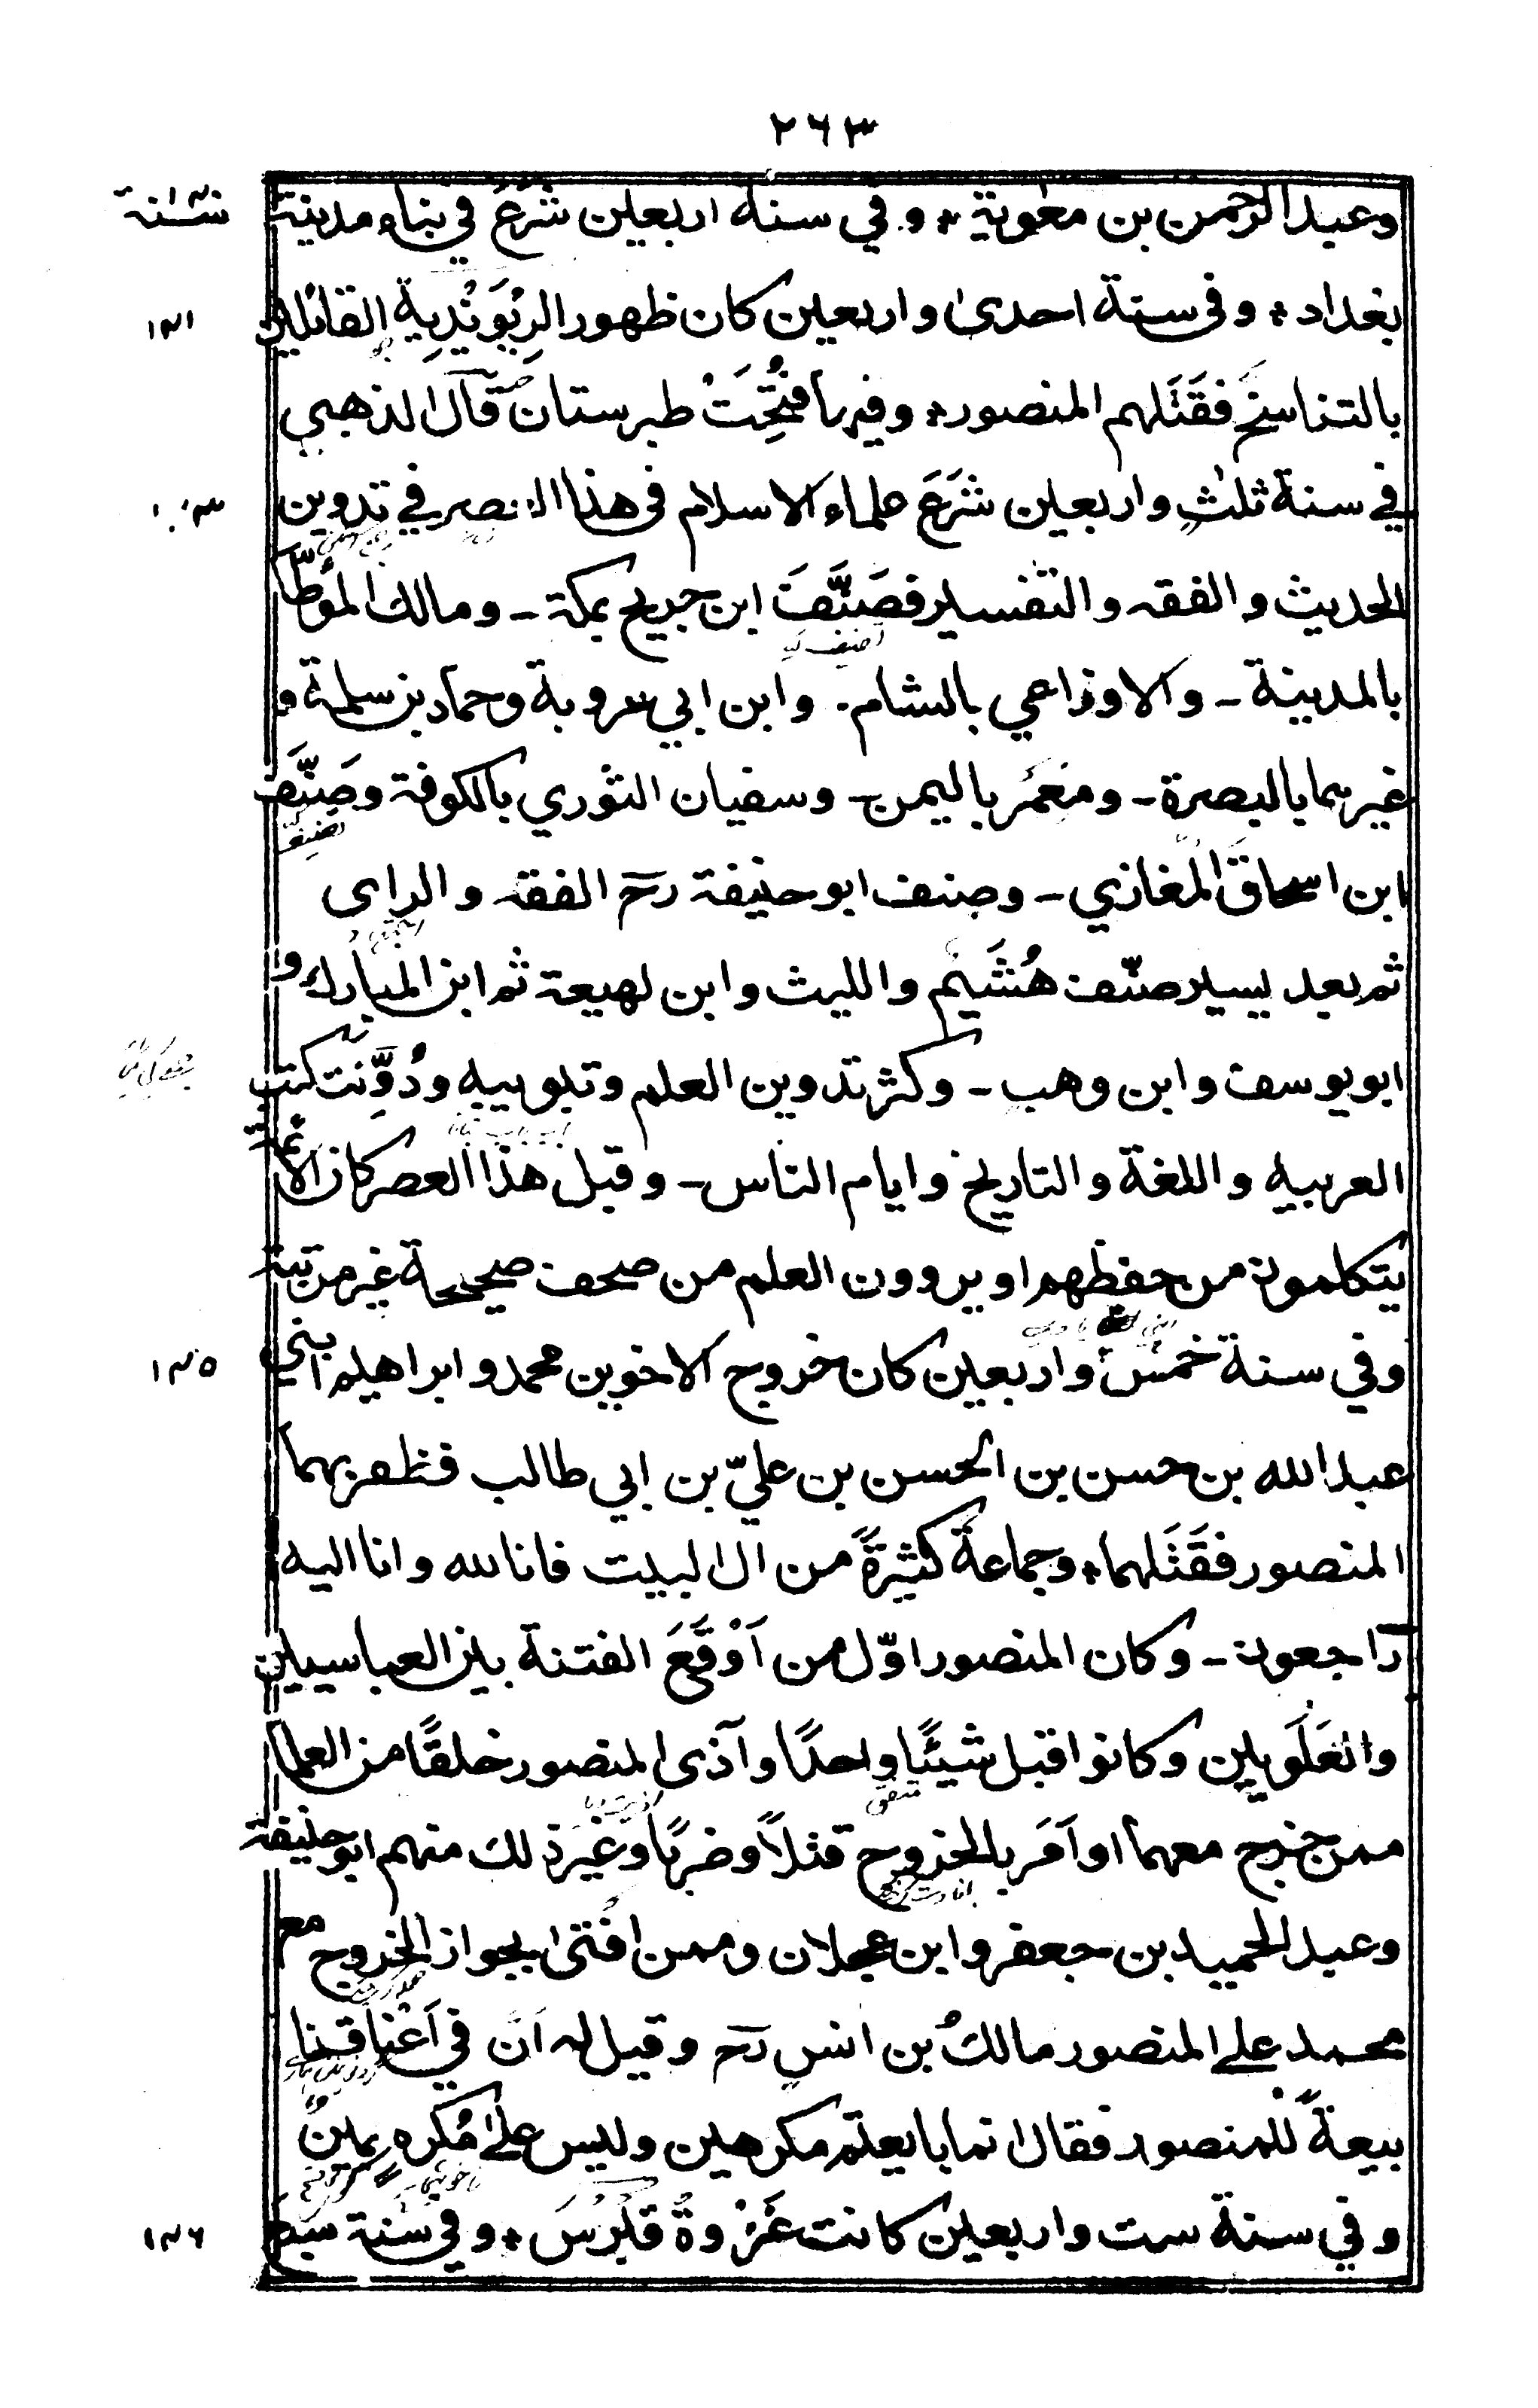 ٢٦٣
وعبد الرحمن بن معٰوية * و في سنة اربعين شَرَعَ في بناء مدينة
بغداد * و فى سنة احدىٰ و اربعين كان ظهور الرِيْوَنْدِيةِ القائلين
١٤١
بالتناسخ فَقَتَلهم المنصور * و فيها فُتِحَتْ طبرستان قال الذهبي
في سنة ثلٰثٍ و اربعين شَرَعَ علماء الاسلام فى هذا العصر في تدوين
الحديث و الفقه و التفسير فصَنَّفَ ابن جريج بمكة ـ و مالك الموطّا
تصنيف
بالمدينة ـ و الاوزاعي بالشام ـ و ابن ابي عروبة و حماد بن سلمة و
غيرهما بالبصرة ـ و مَعْمَر باليمن ـ و سفيان الثوري بالكوفة و صَنَّفَ
تصنيف
ابن اسحاق المغازي ـ و صنف ابو حنيفة رحم الفقه و الراى
ثم بعد يسير صنّف هُشَيْم و الليث و ابن لهيعة ثم ابن المبارك و
ابو يوسف و ابن وهب ـ و كثر تدوين العلم و تبويبه و دُوِّنَت كتب
العربيه و اللغة و التاريخ و ايام الناس ـ و قبل هذا العصر كان الائمة
يتكلمون من حفظهم او يروون العلم من صحف صحيحة غير مرتبة
و في سنة خمس و اربعين كان خروج الاخوين محمد و ابراهيم ابني
١٤٥
عبد الله بن حسن بن الحسن بن عليّ بن ابي طالب فظفر بهما
المنصور فقَتَلهما * و جماعةً كثيرةً من ال البيت فانا لله و انا اليه
راجعون ـ و كان المنصور اوّل من اَوْقَعَ الفتنة بين العباسيين
و العَلَويين و كانوا قبل شيئًا واحدًا و آذى المنصور خلقًا من العلما
متفق
ممن خرج معهما او اَمَر بالخروج قتلاً و ضربًا و غير ذلك منهم ابو حنيفة
و عبد الحميد بن جعفر و ابن عجلان و ممن افتىٰ بجواز الخروج مع
محمد علے المنصور مالكُ بن انس رحم و قيل له اَنَّ في اَعْناقنا
بيعةً للمنصور فقال انما بايعتم مكرهين و ليس علىٰ مُكره يمينٌ
و في سنة ست و اربعين كانت غَزْوةُ قُبْرُسَ * و في سنة سبع
١٤٦